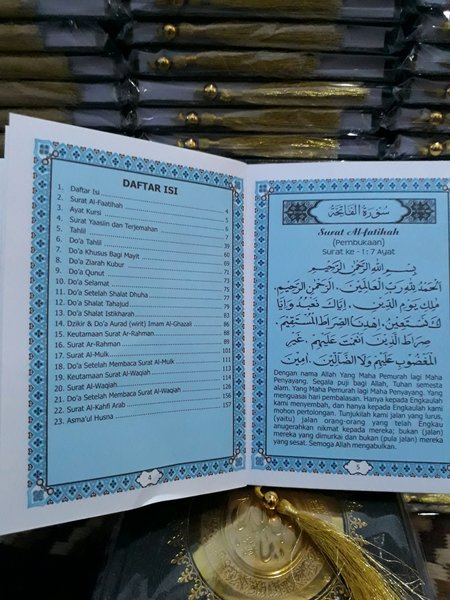 DAFTAR ISI
1. Daftar Isi
2. Surat Al-Faatihah
3. Ayat Kursi
4. Surat Yaasiin dan Terjemahan
5. Tahlil
6. Do'a Tahlil
7. Do'a Khusus Bagi Mayit
8. Do'a Ziarah Kubur
9. Do'a Qunut
10. Do'a Selamat
11. Do'a Setelah Shalat Dhuha
12. Do'a Shalat Tahajud
13. Do'a Shalat Istikharah
14. Dzikir & Do'a Aurad (wirit) Imam Al-Ghazali
15. Keutamaan Surat Ar-Rahman
16. Surat Ar-Rahman
17. Surat Al-Mulk
18. Do'a Setelah Membaca Surat Al-Mulk
19. Keutamaan Surat Al-Waqiah
20. Surat Al-Waqiah
21. Do'a Setelah Membaca Surat Al-Waqiah
22. Surat Al-Kahfi Arab
23. Asma'ul Husna
4
سورة الفاتحة
Surat Al-fatihah
(Pembukaan)
Surat ke - 1 : 7 Ayat
بِسْمِ اللهِ الرَّحْمٰنِ الرَّحِيْمِ
اَلْحَمْدُ لِلّٰهِ رَبِّ الْعَالَمِيْنَ. الرَّحْمٰنِ الرَّحِيْمِ.
مٰلِكِ يَوْمِ الدِّيْنِ. اِيَّاكَ نَعْبُدُ وَاِيَّا
كَ نَسْتَعِيْنُ. اِهْدِنَا الصِّرَاطَ الْمُسْتَقِيْمَ.
صِرَاطَ الَّذِيْنَ اَنْعَمْتَ عَلَيْهِمْ غَيْرِ
الْمَغْضُوْبِ عَلَيْهِمْ وَلَا الضَّالِّيْنَ. اٰمِيْن
Dengan nama Allah Yang Maha Pemurah lagi Maha
Penyayang. Segala puji bagi Allah, Tuhan semesta
alam. Yang Maha Pemurah lagi Maha Penyayang. Yang
menguasai hari pembalasan. Hanya kepada Engkaulah
kami menyembah, dan hanya kepada Engkaulah kami
mohon pertolongan. Tunjukilah kami jalan yang lurus,
(yaitu) jalan orang-orang yang telah Engkau
anugerahkan nikmat kepada mereka; bukan (jalan)
mereka yang dimurkai dan bukan (pula jalan) mereka
yang sesat. Semoga Allah mengabulkan.
5